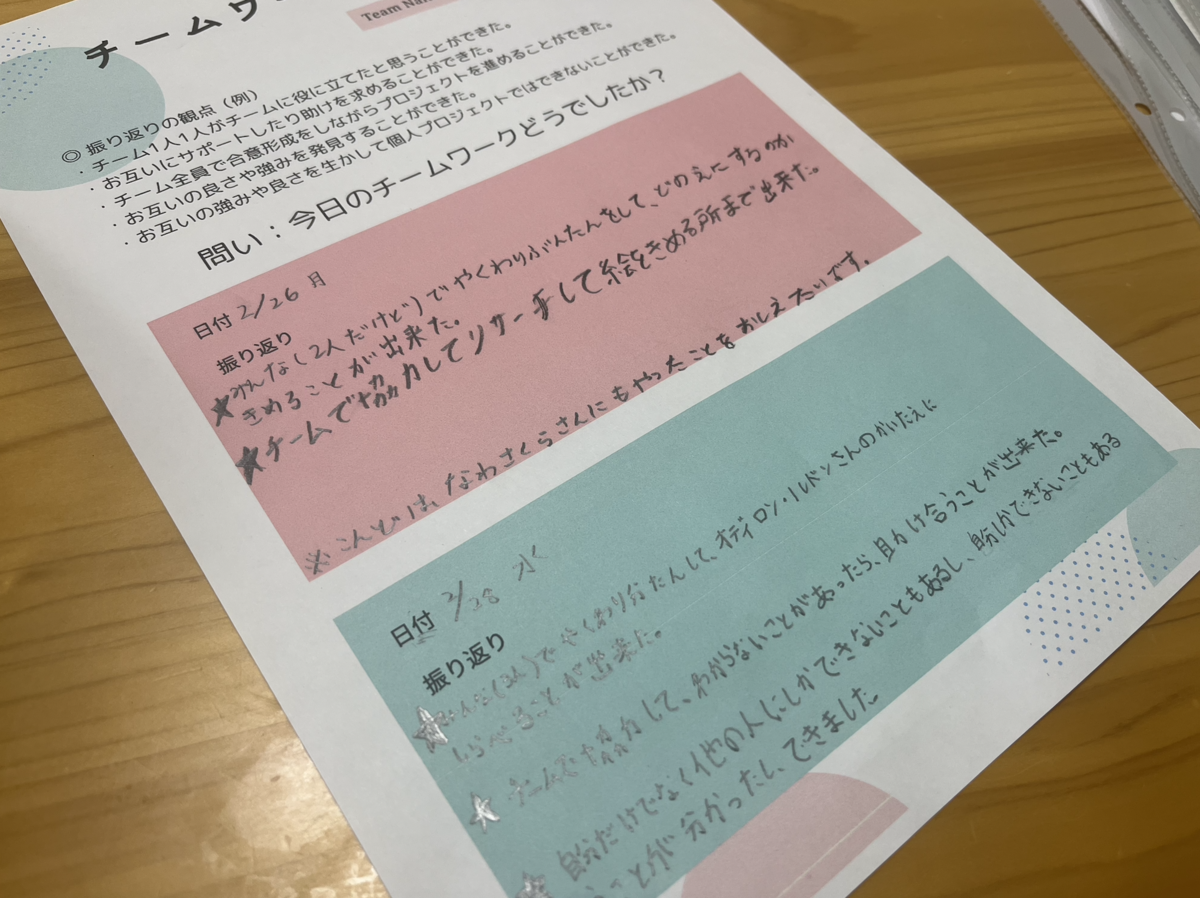 チームワ
Team Nam
◎ 振り返りの観点（例）
・チーム1人1人がチームに役に立てたと思うことができた。
・お互いにサポートしたり助けを求めることができた。
・チーム全員で合意形成をしながらプロジェクトを進めることができた。
・お互いの良さや強みを発見することができた。
・お互いの強みや良さを生かして個人プロジェクトではできないことができた。
問い：今日のチームワークどうでしたか？
日付 2/26 月
振り返り
★みんな(2人だけど)でやくわりぶんたんをして、どのえにするのか
きめることが出来た。
★チームで協力してリサーチして絵をきめる所まで出来た。
※こんどは、なわさくらさんにもやったことをおしえたいです。
日付 2/28 水
振り返り
☆みんな(3人)でやくわり分たんして、オディロン・ルドンさんのかいたえに
しらべることが出来た。
☆チームで協力して、わからないことがあったら、助け合うことが出来た。
☆自分だけでなく他の人にしかできないこともあるし、自分しかできないこともある
ことが分かったし、できました